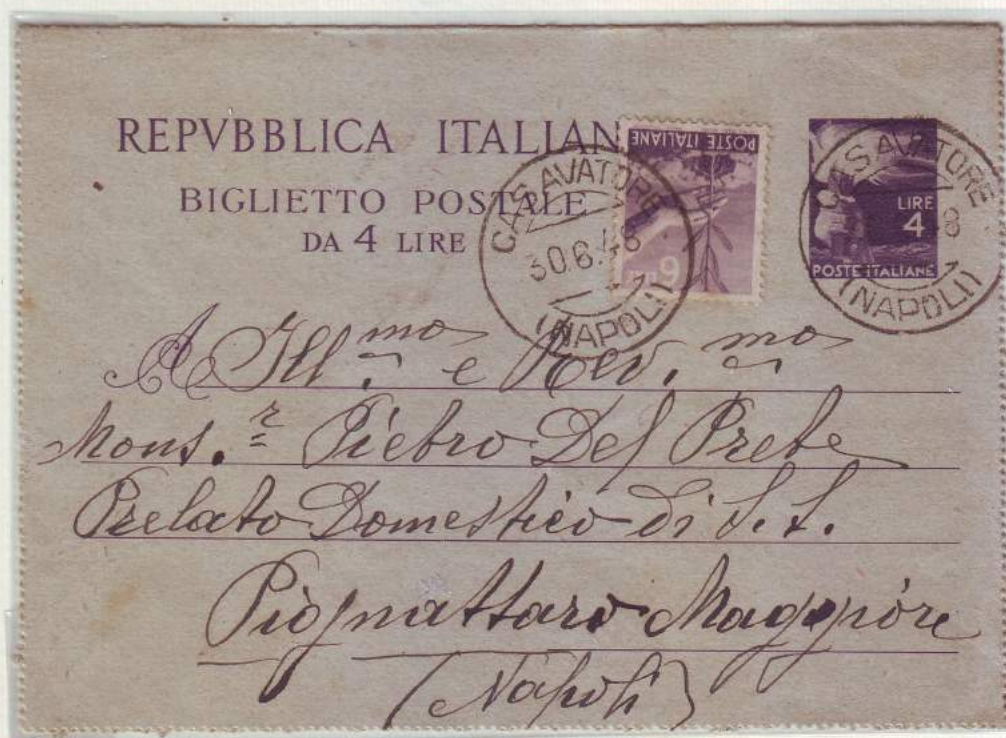 REPVBBLICA ITALIAN
BIGLIETTO POSTALE
DA 4 LIRE
POSTE ITALIANE
6 LIRE
CASAVATORE
30.6.48
(NAPOLI)
LIRE
4
POSTE ITALIANE
CASAVATORE
8
(NAPOLI)
A Ill.mo e Rev.mo
Mons.r Pietro Del Prete
Prelato Domestico di S. S.
Pignattaro Maggiore
(Napoli)